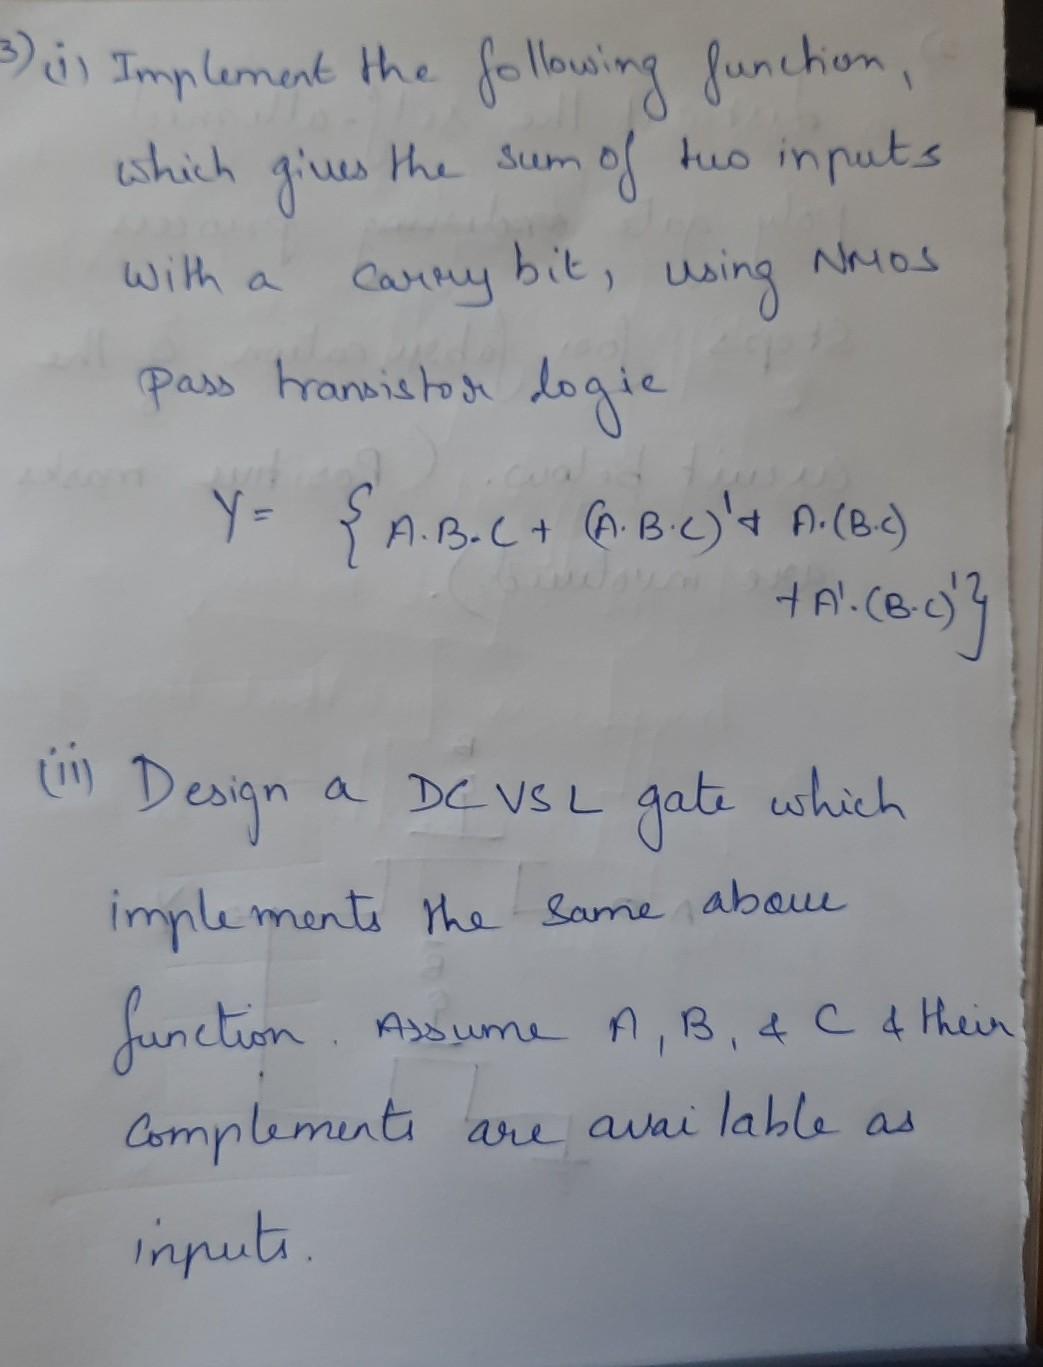 3) (i) Implement the following function,
which gives the sum of two inputs
with a carry bit, using NMOS
pass transistor logic
Y = { A.B.C + (A.B.C)' + A.(B.C)
+ A'.(B.C)' }
(ii) Design a DCVSL gate which
implements the same above
function. Assume A, B, & C & their
complements are available as
inputs.